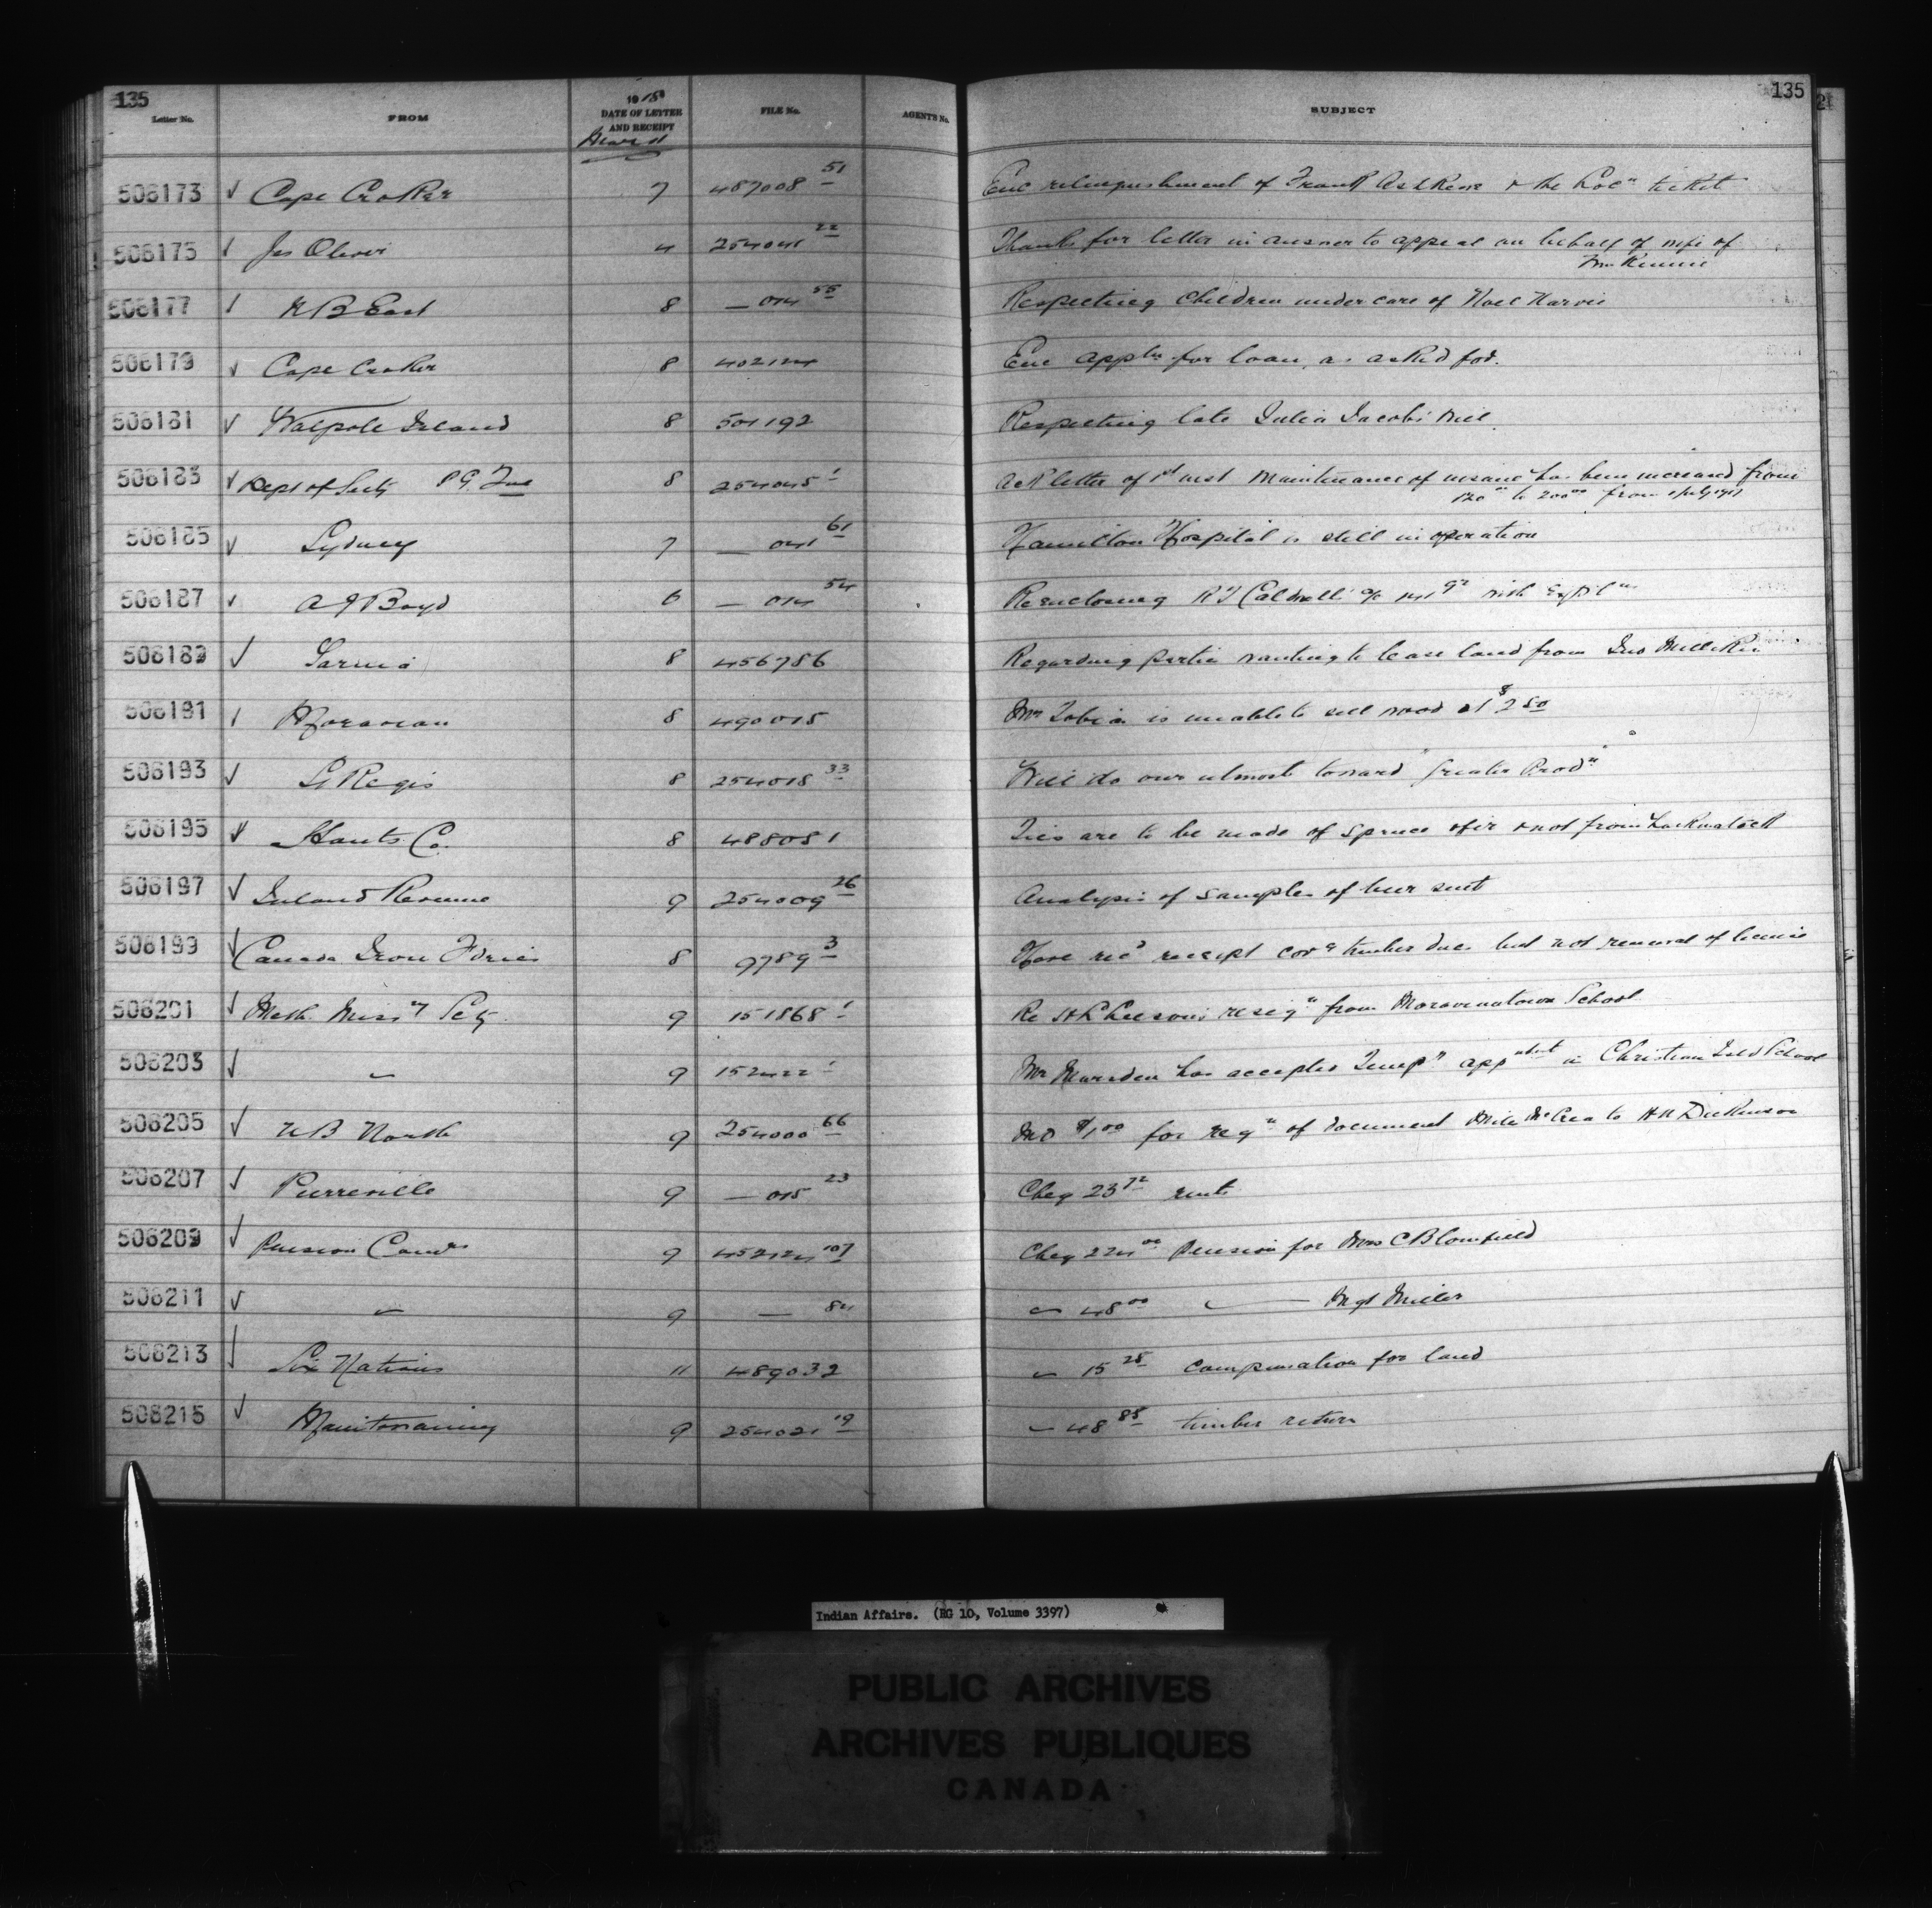 135
135
Letter No. FROM 1918 DATE OF LETTER AND RECEIPT FILE No. AGENTS No. SUBJECT
March
506173 √ Cape Croker 7 487008 51 Enc relinquishment of Frank & the Locn ticket
506175 √ Jas Oliver 4 254041 22 Thanks for letter in answer to appeal on behalf of wife of
Wm Rennie
506177 √ N B East 8 — 014 55 Respecting children under care of Noel
506179 √ Cape Croker 8 402124 Enc appln for loan, as asked for.
506181 √ Walpole Island 8 501192 Respecting late Julia Jacobs will
506183 √ Dept of Secty P. G. 8 254045 1 Ack letter of 1st inst Maintenance of insane has been increased from
120 00 to 200 00 from 1 July 1917
506185 √ Sydney 7 — 041 61 Hamilton Hospital is still in operation
506187 √ A J Boyd 6 — 014 54 Re enclosing R J Caldwell a/c with
506189 √ Sarnia 8 456786 Regarding parties wanting to lease land from Jno Milliken
506191 √ Moravian 8 490015 Mr Tobias is unable to sell wood at $2 50
506193 √ St Regis 8 254018 33 Will do our utmost toward "Greater Prodn"
506195 √ Hants Co. 8 488081 Ties are to be made of spruce & fir & not from hackmatack
506197 √ Inland Revenue 9 254009 26 Analysis of samples of beer sent
506199 √ Canada Iron Fdries 8 9789 3 Have recd receipt covg timber dues but not renewal of license
506201 √ Meth. Missy Scty 9 151868 1 Re resign from Moraviantown School
506203 √ " 9 152422 1 Mr Marsden has accepted Tempy appntmt in Christian Isld School
506205 √ N B North 9 254000 66 MO $1 00 for regn of document McCrea to Dickinson
506207 √ Pierreville 9 — 015 23 Cheq 23 72 rent
506209 √ Pension Comrs 9 452124 107 Cheq 224 00 Pension for Mrs C Blomfield
506211 √ " 9 — 84 " 48 00 " Mgt Miller
506213 √ Six Nations 11 489032 " 15 25 compensation for land
506215 √ Manitowaning 9 254021 19 " 48 85 timber return
Indian Affairs. (RG 10, Volume 3397)
PUBLIC ARCHIVES
ARCHIVES PUBLIQUES
CANADA